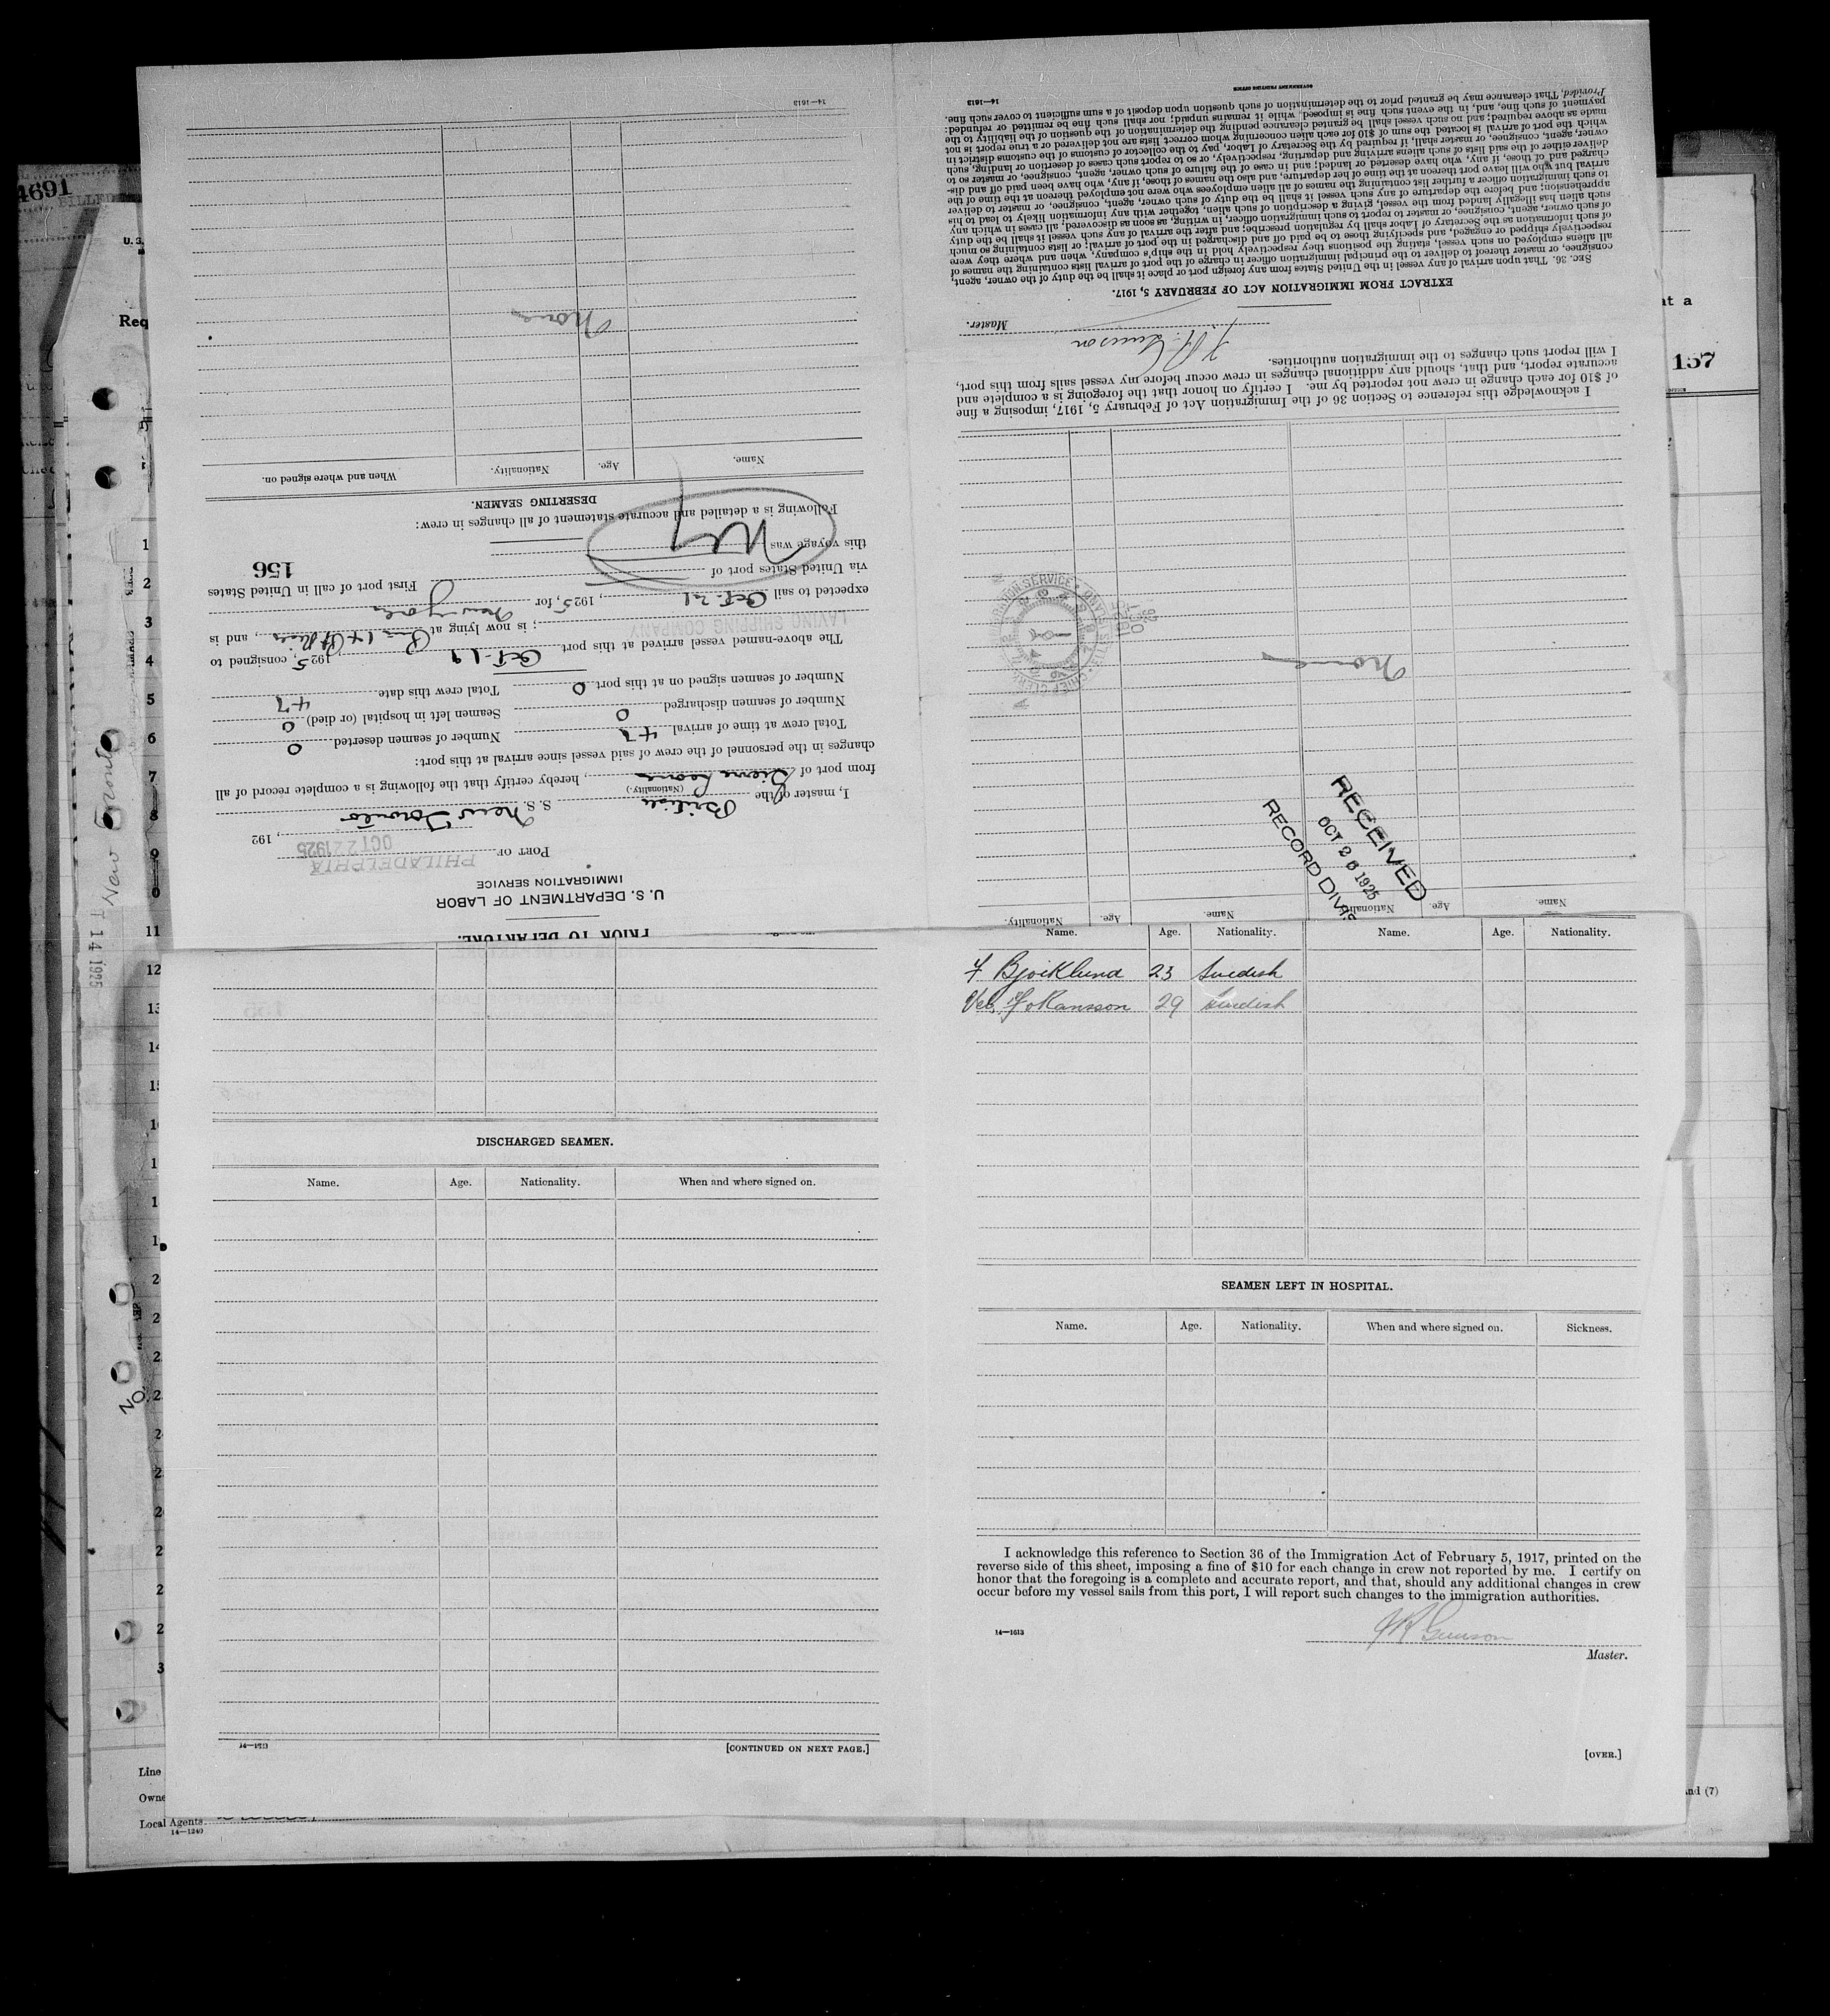 4691
BILLED
U. S.
Req
at a
157
PRIOR TO DEPARTURE.
U. S. DEPARTMENT OF LABOR
IMMIGRATION SERVICE
PORT OF PHILADELPHIA
OCT 22 1925, 192
I, master of the British S. S. New Toronto
(Nationality.)
from port of Sierra Leone, hereby certify that the following is a complete record of all
changes in the personnel of the crew of said vessel since arrival at this port:
Total crew at time of arrival 47 Number of seamen deserted 0
Number of seamen discharged 0 Seamen left in hospital (or died) 0
Number of seamen signed on at this port 0 Total crew this date 47
The above-named vessel arrived at this port Oct-19, 1925, consigned to
LAVINO SHIPPING COMPANY; is now lying at Pier 14, and is
expected to sail Oct-21, 1925, for New York
via United States port of First port of call in United States
this voyage was NY
156
Following is a detailed and accurate statement of all changes in crew:
DESERTING SEAMEN.
Name. Age. Nationality. When and where signed on.
None
14—1613
Name. Age. Nationality. Name. Age. Nationality.
RECEIVED
OCT 26 1925
RECORD DIV.
None
I acknowledge this reference to Section 36 of the Immigration Act of February 5, 1917, imposing a fine
of $10 for each change in crew not reported by me. I certify on honor that the foregoing is a complete and
accurate report, and that, should any additional changes in crew occur before my vessel sails from this port,
I will report such changes to the immigration authorities.
Master.
EXTRACT FROM IMMIGRATION ACT OF FEBRUARY 5, 1917.
SEC. 36. That upon arrival of any vessel in the United States from any foreign port or place it shall be the duty of the owner, agent,
consignee, or master thereof to deliver to the principal immigration officer in charge of the port of arrival lists containing the names of
all aliens employed on such vessel, stating the positions they respectively hold in the ship's company, when and where they were
respectively shipped or engaged, and specifying those to be paid off and discharged in the port of arrival; or lists containing so much
of such information as the Secretary of Labor shall by regulation prescribe; and after the arrival of any such vessel it shall be the duty
of such owner, agent, consignee, or master to report to such immigration officer, in writing, as soon as discovered, all cases in which any
such alien has illegally landed from the vessel, giving a description of such alien, together with any information likely to lead to his
apprehension; and before the departure of any such vessel it shall be the duty of such owner, agent, consignee, or master to deliver
to such immigration officer a further list containing the names of all alien employees who were not employed thereon at the time of the
arrival but who will leave port thereon at the time of her departure, and also the names of those, if any, who have been paid off and dis-
charged and of those, if any, who have deserted or landed; and in case of the failure of such owner, agent, consignee, or master so to
deliver either of the said lists of such aliens arriving and departing, respectively, or so to report such cases of desertion or landing, such
owner, agent, consignee, or master shall, if required by the Secretary of Labor, pay to the collector of customs of the customs district in
which the port of arrival is located the sum of $10 for each alien concerning whom correct lists are not delivered or a true report is not
made as above required; and no such vessel shall be granted clearance pending the determination of the question of the liability to the
payment of such fine, and, in the event such fine is imposed, while it remains unpaid; nor shall such fine be remitted or refunded:
Provided, That clearance may be granted prior to the determination of such question upon deposit of a sum sufficient to cover such fine.
14—1613
GOVERNMENT PRINTING OFFICE
New Toronto
14 1925
No.
1
2
3
4
5
6
7
8
9
11
12
13
DISCHARGED SEAMEN.
Name. Age. Nationality. When and where signed on.
[CONTINUED ON NEXT PAGE.]
Name. Age. Nationality. Name. Age. Nationality.
F Bjorklund 23 Swedish
Johansson 29 Swedish
SEAMEN LEFT IN HOSPITAL.
Name. Age. Nationality. When and where signed on. Sickness.
I acknowledge this reference to Section 36 of the Immigration Act of February 5, 1917, printed on the
reverse side of this sheet, imposing a fine of $10 for each change in crew not reported by me. I certify on
honor that the foregoing is a complete and accurate report, and that, should any additional changes in crew
occur before my vessel sails from this port, I will report such changes to the immigration authorities.
14—1613
Master.
[OVER.]
Line
Owne
Local Agents
14—1240
and (7)